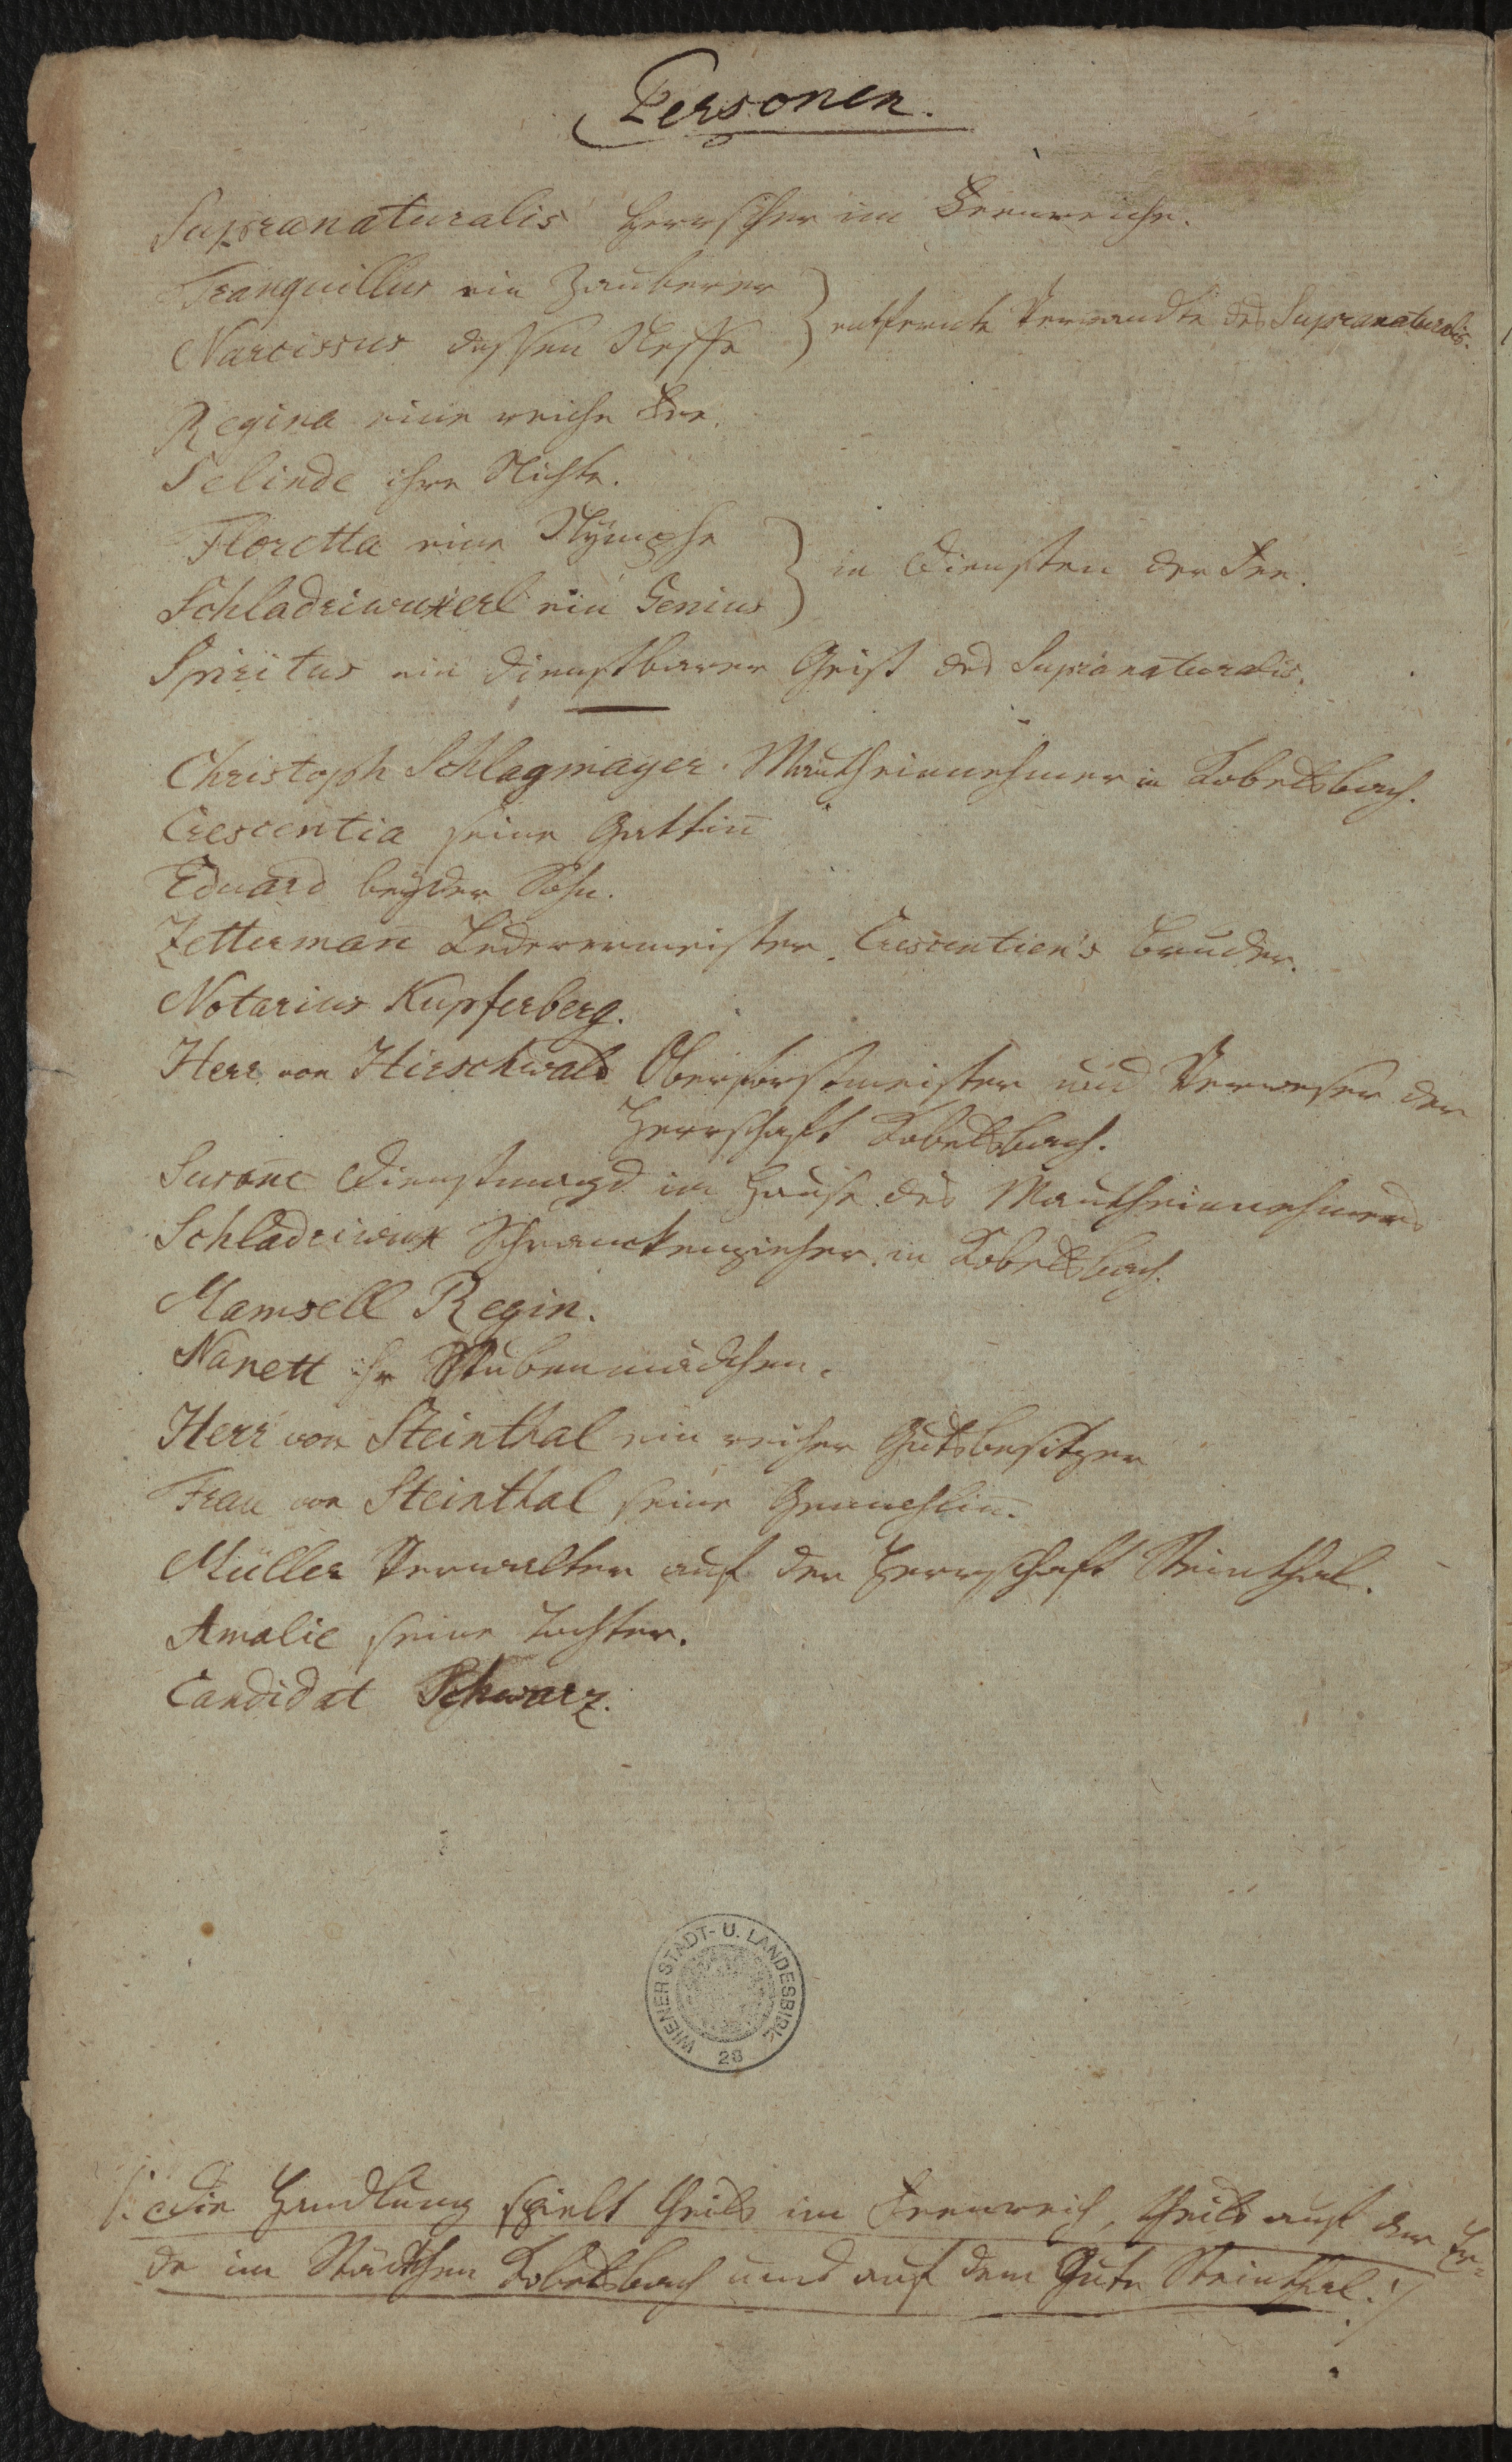 Personen.
Supranaturalis Herrscher im Feenreiche.
Tranquillus ein Zauberer
Narcissus dessen Neffe } entfernte Verwandte des Supranaturalis.
Regina eine reiche Fee.
Selinde ihre Nichte.
Floretta eine Nÿmphe
Schladriwuxerl ein Genius } in Diensten der Fee.
Spiritus ein dienstbarer Geist des Supranaturalis.
Christoph Schlagmayer. Mautheinnehmer in Kobelsbach.
Crescentia seine Gattin̅
Eduard beÿder Sohn.
Zetterman̅ Lederermeister, Crescentien's Bruder.
Notarius Kupferberg.
Herr von Hirschwald Oberforstmeister und Verweser der
Herrschaft Kobelsbach.
Susan̅e Dienstmagd im Hause des Mautheinnehmers
Schladriwux Schrankenzieher in Kobelsbach.
Mamsell Regin.
Nanett ihr Stubenmädchen.
Herr von Steinthal ein reicher Gutsbesitzer
Frau von Steinthal seine Gemahlin̅.
Müller Verwalter auf der Herrschaft Steinthal.
Amalie seine Tochter.
Candidat Schwarz.
WIENER STADT- U. LANDESBIBL.
28
/: Die Handlung spielt theils im Feenreich, theils auf der Er-
de im Städtchen Kobelsbach und auf dem Gute Steinthal. :/